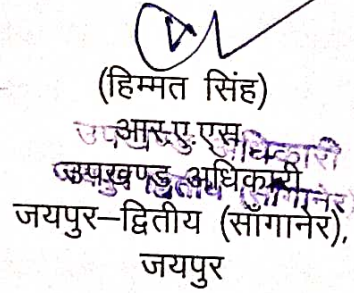 (हिम्मत सिंह)
आर.ए.एस.
उपखण्ड अधिकारी
जयपुर–द्वितीय (साँगानेर),
जयपुर